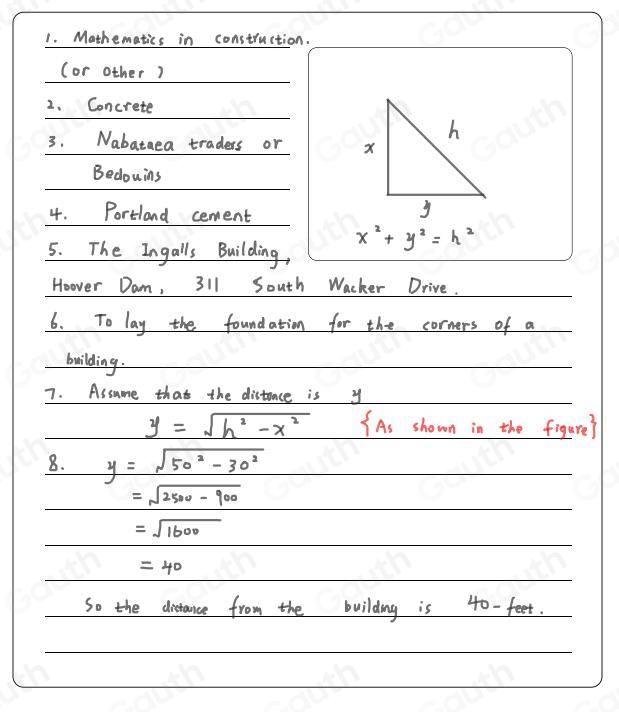 1. Mathematics in construction.
(or other)
2. Concrete
3. Nabataea traders or
Bedouins
4. Portland cement
5. The Ingalls Building,
Hoover Dam, 311 South Wacker Drive.
x
h
y
x² + y² = h²
6. To lay the foundation for the corners of a
building.
7. Assume that the distance is y
y = √h² - x² {As shown in the figure}
8. y = √50² - 30²
= √2500 - 900
= √1600
= 40
So the distance from the building is 40-feet.
Gauth